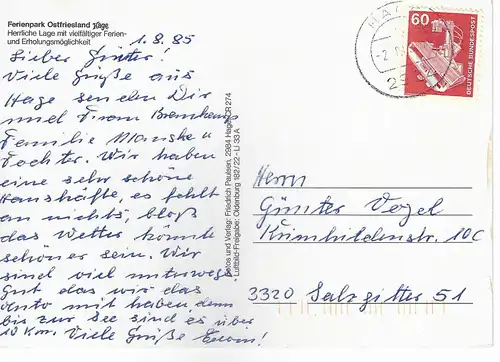 Ferienpark Ostfriesland Hage
Herrliche Lage mit vielfältiger Ferien-
und Erholungsmöglichkeit
1.8.85
Lieber Günter!
Viele Grüße aus
Hage senden Dir
und Frau
Familie Manske u
Tochter. Wir haben
eine sehr schöne
Haushälfte, es fehlt
an nichts, bloß
das Wetter könnte
schöner sein. Wir
sind viel unterwegs
Gut das wir das
Auto mit haben, denn
bis zur See sind es über
10 Km. Viele Grüße
Fotos und Verlag: Friedrich Paulsen, 2984 Hage CR 274
Luftbild-Freigabe: Oldenburg 182/22 - LI 33 A
HA
2
60
DEUTSCHE BUNDESPOST
Herrn
Günter Vogel
Krimhildenstr. 10C
3320 Salzgitter 51